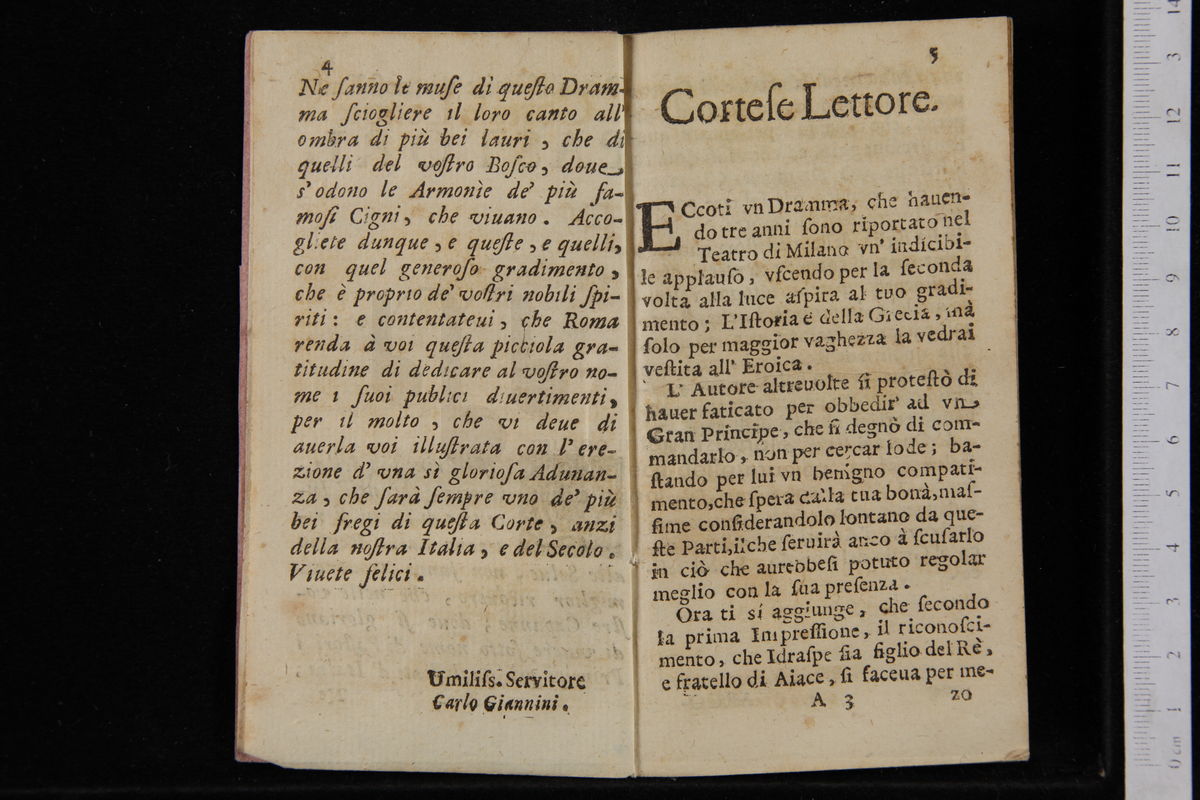 4
Ne ſanno le muſe di queſto Dram-
ma ſciogliere il loro canto all'
ombra di più bei lauri, che di
quelli del voſtro Boſco, doue
s'odono le Armonìe de' più fa-
moſi Cigni, che viuano. Acco-
gliete dunque, e queſte, e quelli,
con quel generoſo gradimento,
che è proprio de' voſtri nobili ſpi-
riti: e contentateui, che Roma
renda à voi queſta picciola gra-
titudine di dedicare al voſtro no-
me i ſuoi publici diuertimenti,
per il molto, che vi deue di
auerla voi illuſtrata con l'ere-
zione d'vna sì glorioſa Adunan-
za, che ſarà ſempre vno de' più
bei fregi di queſta Corte, anzi
della noſtra Italia, e del Secolo.
Viuete felici.
Umiliſs. Servitore
Carlo Giannini.
5
Corteſe Lettore.
ECcoti vn Dramma, che hauen-
do tre anni ſono riportato nel
Teatro di Milano vn' indicibi-
le applauſo, vſcendo per la ſeconda
volta alla luce aſpira al tuo gradi-
mento; L'Iſtoria è della Grecia, mà
ſolo per maggior vaghezza la vedrai
veſtita all' Eroica.
L' Autore altreuolte ſi proteſtò di
hauer faticato per obbedir' ad vn
Gran Principe, che ſi degnò di com-
mandarlo, non per cercar lode; ba-
ſtando per lui vn benigno compati-
mento, che ſpera dalla tua bonà, maſ-
ſime conſiderandolo lontano da que-
ſte Parti, ilche ſeruirà anco à ſcuſarlo
in ciò che aurebbeſi potuto regolar
meglio con la ſua preſenza.
Ora ti sì aggiunge, che ſecondo
la prima Impreſſione, il riconoſci-
mento, che Idraſpe ſia figlio del Rè,
e fratello di Aiace, ſi faceua per me-
A 3 zo
0 cm 1 2 3 4 5 6 7 8 9 10 11 12 3 14